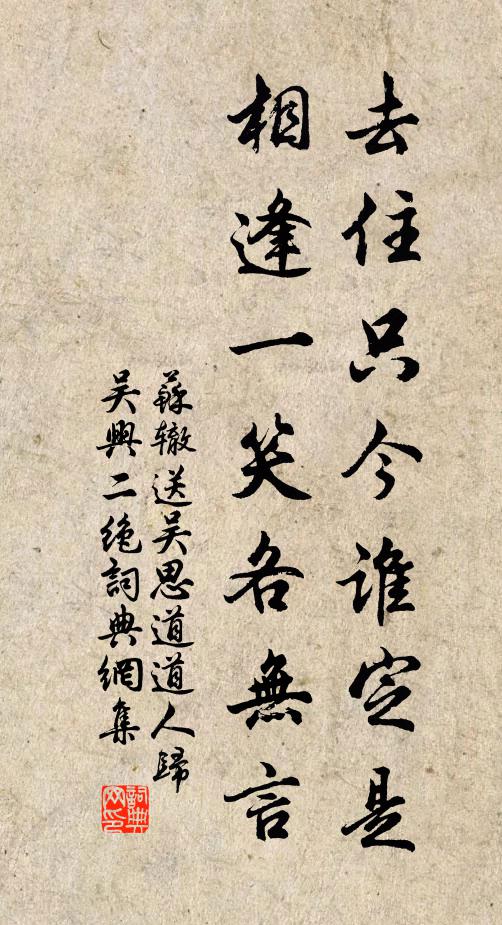 去住只今谁定是
相逢一笑各無言
蘇辙送吴思道道人歸
吴興二绝詞典網集
詞典网印